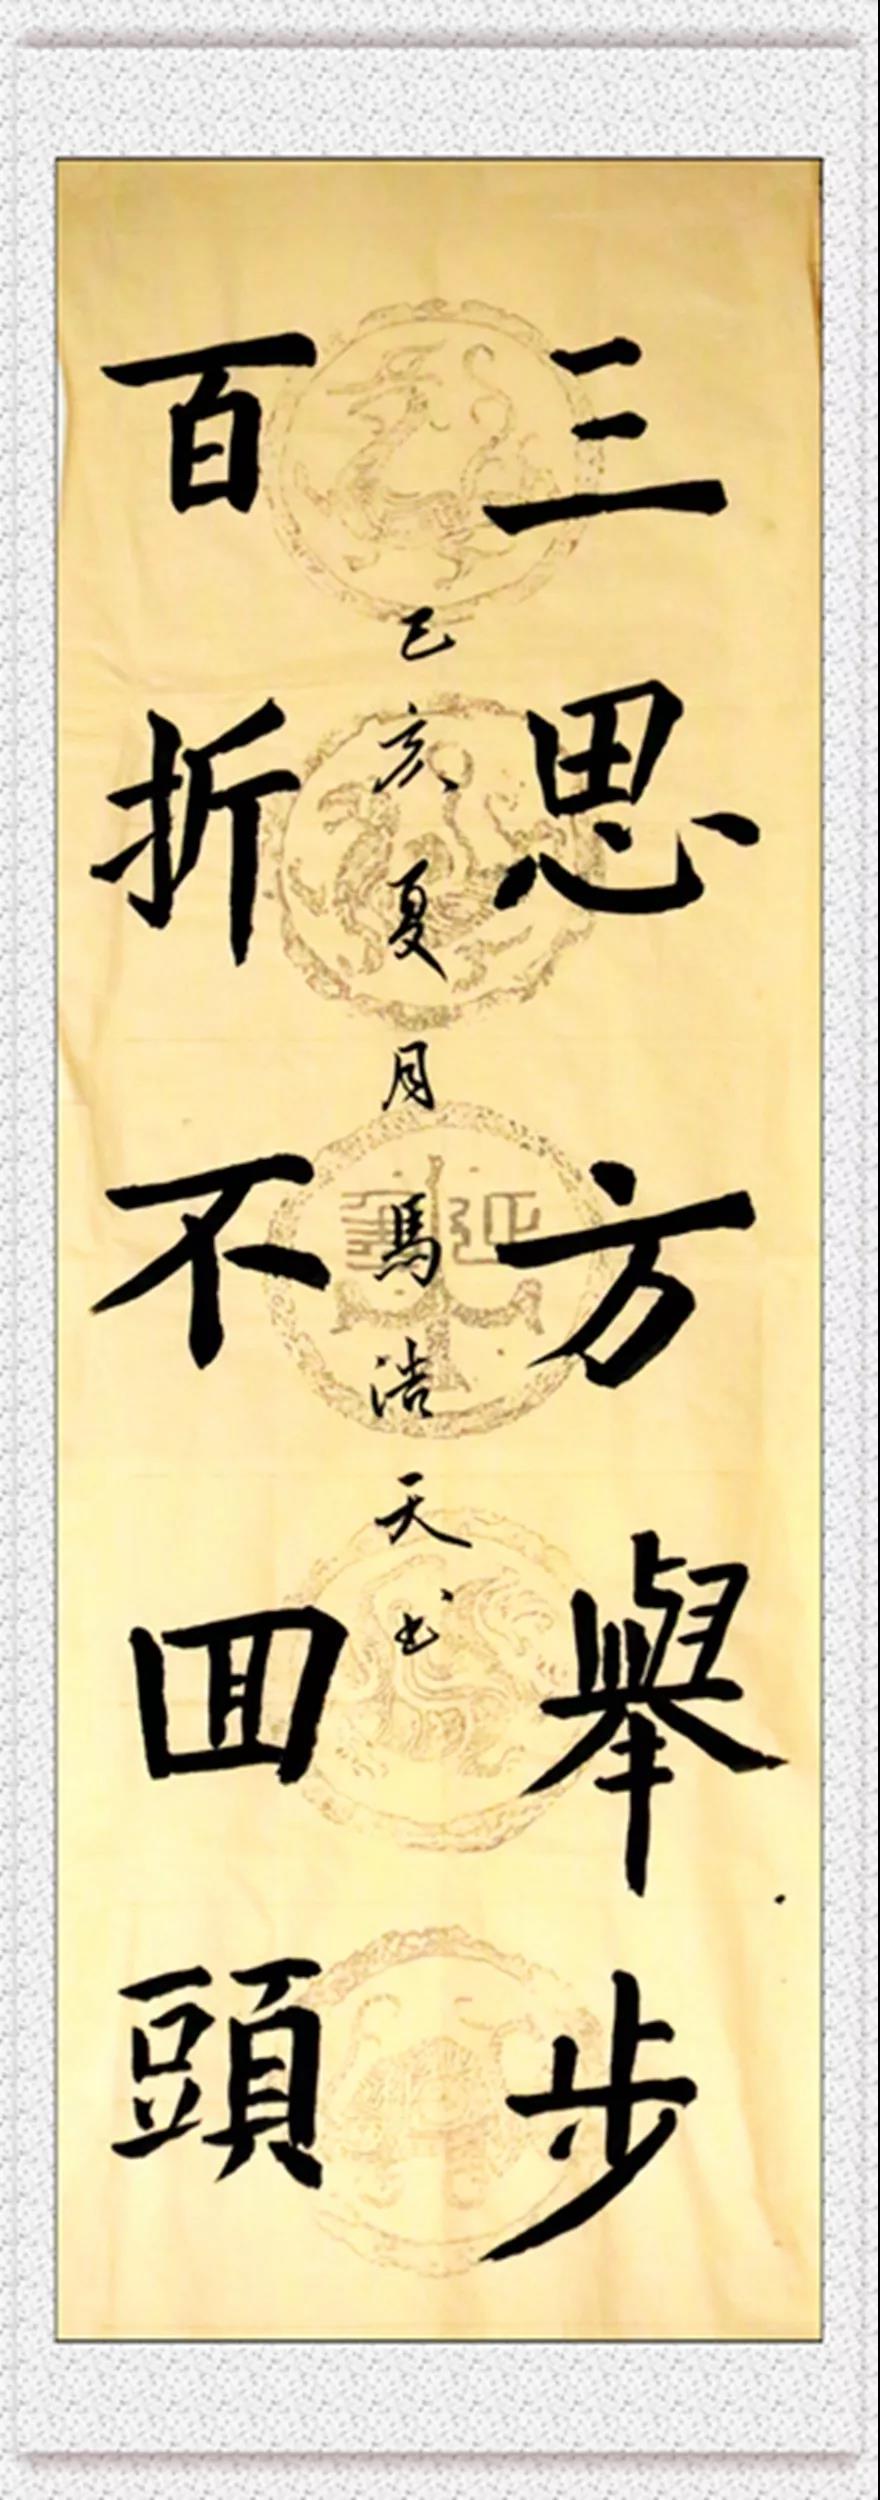 三思方舉步
百折不回頭
己亥夏月馬浩天书